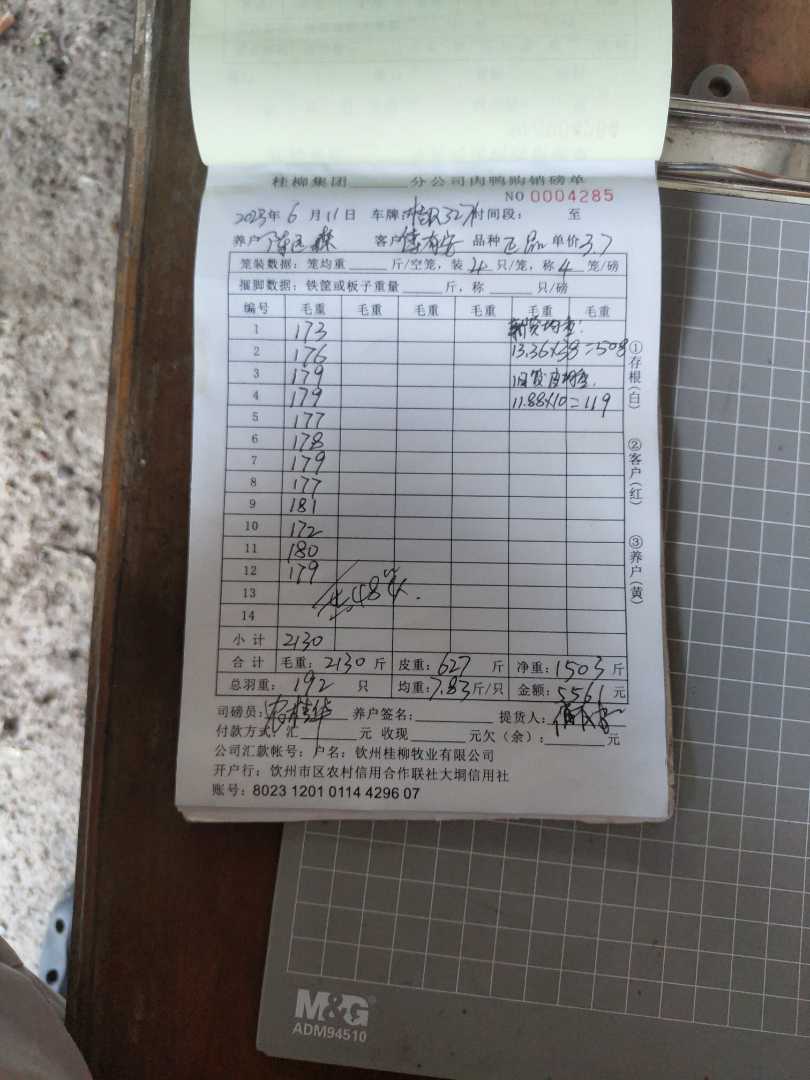 桂柳集团 分公司肉鸭购销磅单
NO 0004285
2023年 6 月 11日 车牌 327 时间段: 至
养户 客户 品种 正品 单价 3.7
笼装数据: 笼均重 斤/空笼, 装 4 只/笼, 称 4 笼/磅
捆脚数据: 铁筐或板子重量 斤, 称 只/磅
编号 毛重 毛重 毛重 毛重 毛重 毛重
1 173
2 176 13.36×38=508
3 179
4 179 11.88×10=119
5 177
6 178
7 179
8 177
9 181
10 172
11 180
12 179
13 共48笼.
14
小计 2130
合计 毛重: 2130 斤 皮重: 627 斤 净重: 1503 斤
总羽重: 192 只 均重: 7.83 斤/只 金额: 5561 元
司磅员: 养户签名: 提货人:
付款方式: 汇 元 收现 元欠(余): 元
公司汇款帐号: 户名: 钦州桂柳牧业有限公司
开户行: 钦州市区农村信用合作联社大垌信用社
账号: 8023 1201 0114 4296 07
①存根(白)
②客户(红)
③养户(黄)
M&G
ADM94510